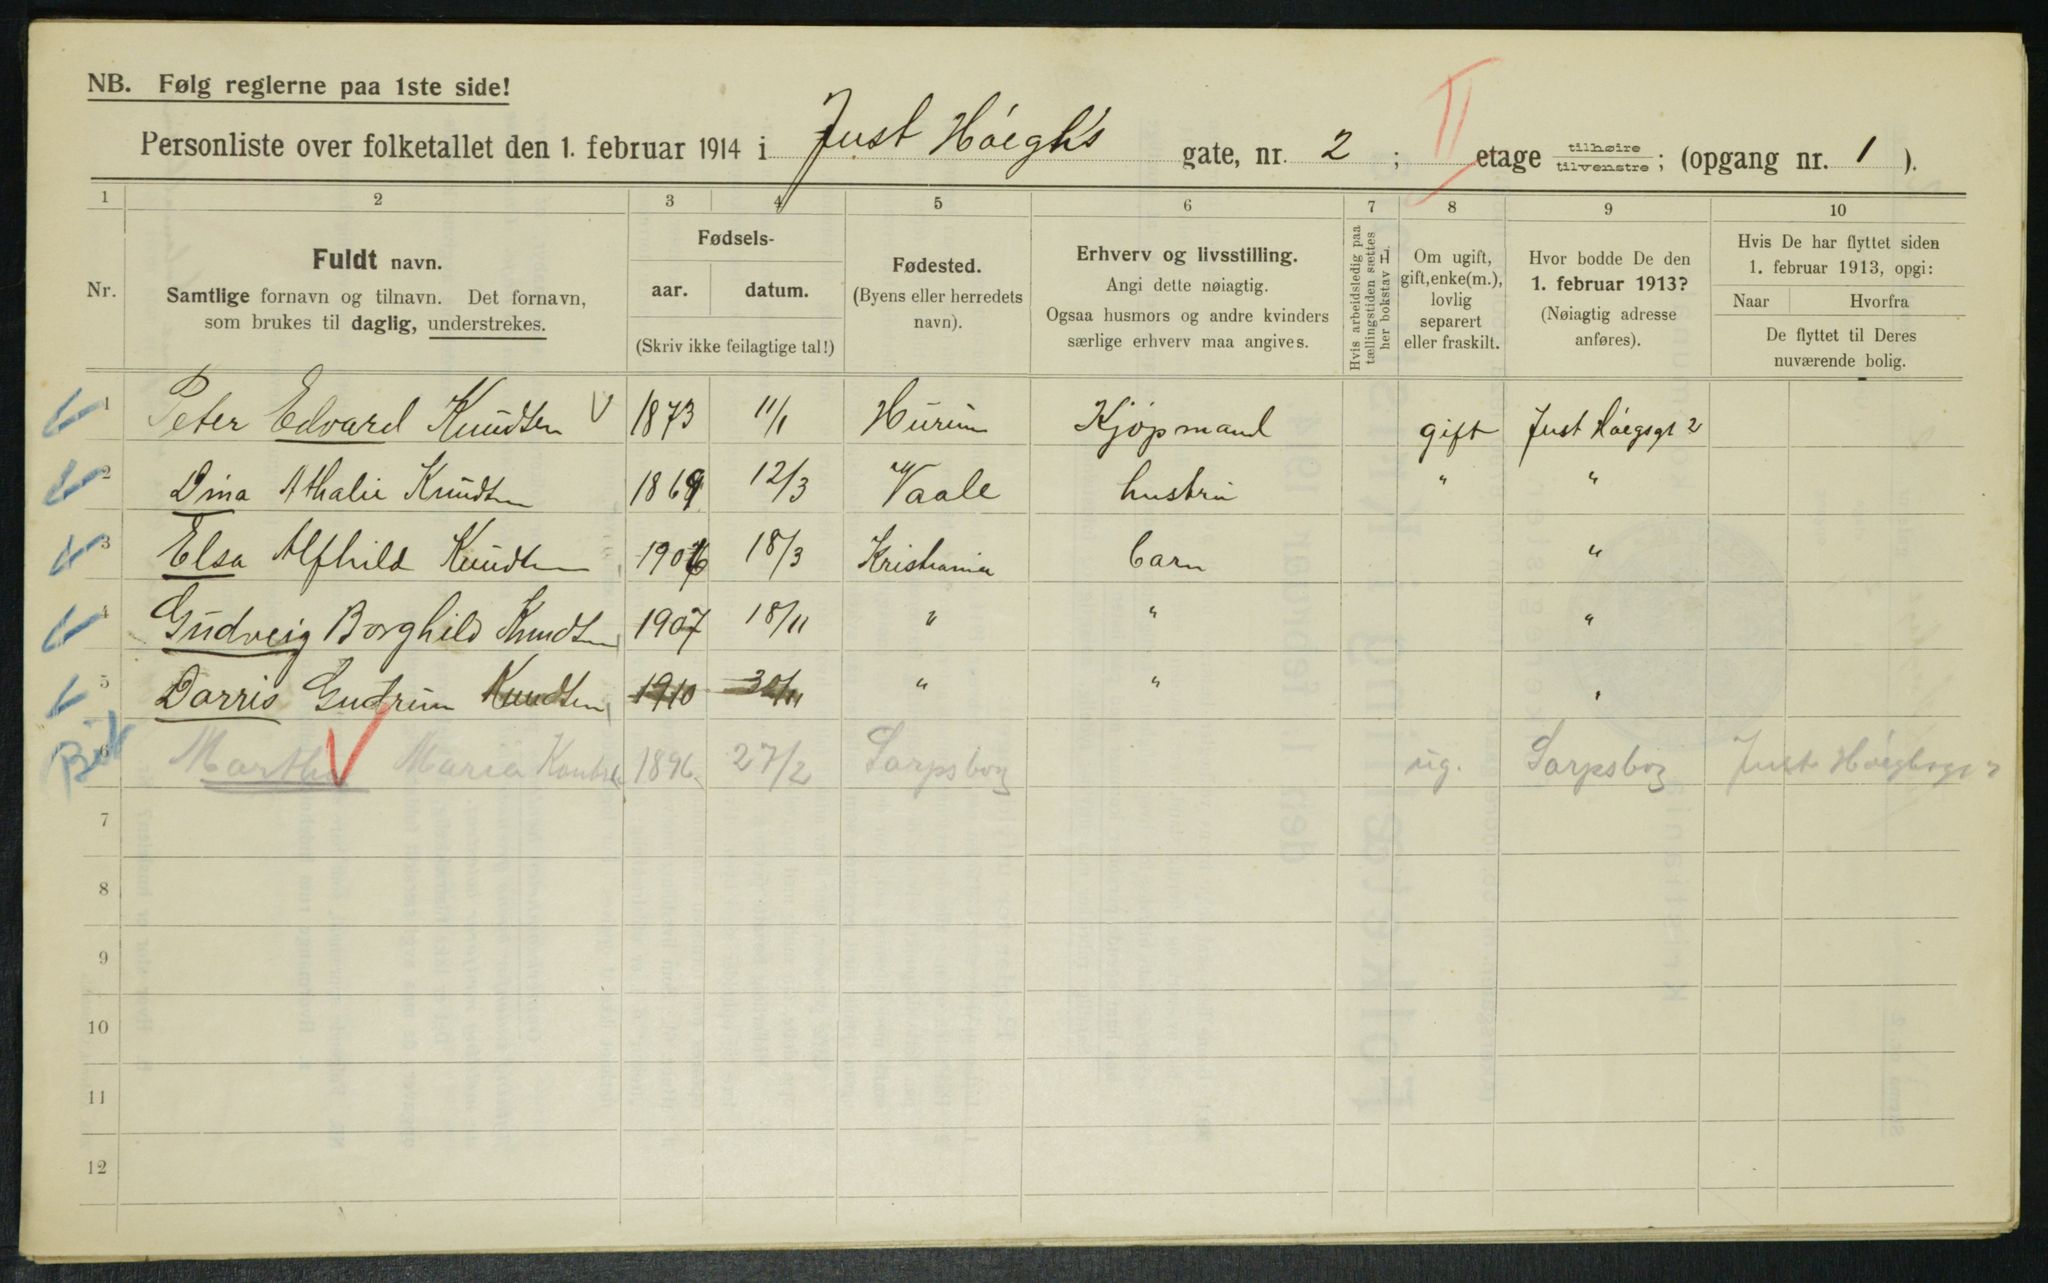 NB. Følg reglerne paa 1ste side!
Personliste over folketallet den 1. februar 1914 i Just Høegh's gate, nr. 2 ; II etage tilhøire tilvenstre ; (opgang nr. 1 ).
1 2 3 4 5 6 7 8 9 10
Nr.
Fuldt navn.
Samtlige fornavn og tilnavn. Det fornavn,
som brukes til daglig, understrekes.
Fødsels-
aar. datum.
(Skriv ikke feilagtige tal!)
Fødested.
(Byens eller herredets
navn).
Erhverv og livsstilling.
Angi dette nøiagtig.
Ogsaa husmors og andre kvinders
særlige erhverv maa angives.
Hvis arbeidsledig paa
tællingstiden sættes
her bokstav L.
Om ugift,
gift, enke(m.),
lovlig
separert
eller fraskilt.
Hvor bodde De den
1. februar 1913?
(Nøiagtig adresse
anføres).
Hvis De har flyttet siden
1. februar 1913, opgi:
Naar Hvorfra
De flyttet til Deres
nuværende bolig.
1 Peter Edvard Knudsen 1873 11/1 Hurum Kjøpmand gift Just Høegsgt 2
2 Dina Athalie Knudsen 1869 12/3 Vaale hustru " "
3 Elsa Alfhild Knudsen 1906 18/3 Kristiania barn "
4 Gudveig Borghild Knudsen 1907 18/11 " " "
5 Dorris Gudrun Knudsen 1910 30/11 " " "
6 Martha Maria 1896 27/2 Sarpsborg ug. Sarpsborg
7
8
9
10
11
12